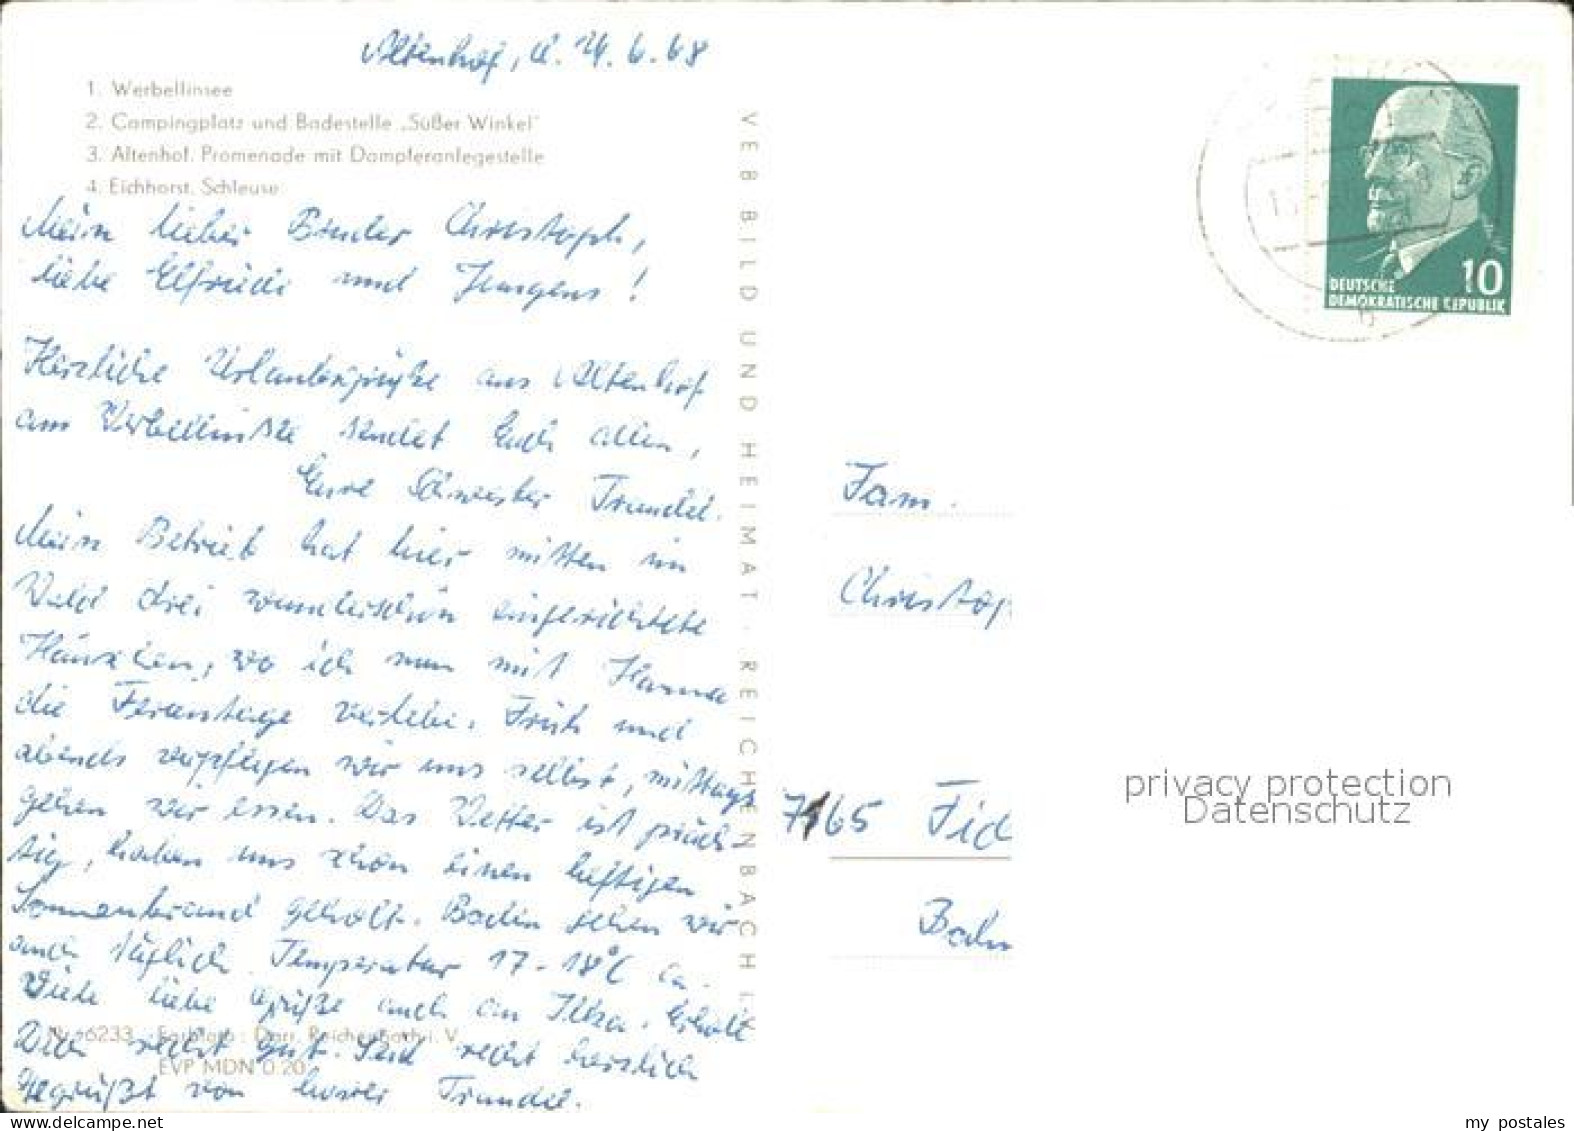 Altenhof, d. 14.6.68
1. Werbellinsee
2. Campingplatz und Badestelle „Süßer Winkel"
3. Altenhof. Promenade mit Dampferanlegestelle
4. Eichhorst. Schleuse
Mein lieber Bruder Christoph,
liebe Elfriede und Jungens!
Herzliche Urlaubsgrüße aus Altenhof
am Werbellinsee sendet Euch allen,
Eure Schwester Traudel.
Mein Betrieb hat hier mitten im
Wald drei wunderschön eingerichtete
Häuschen, wo ich nun mit Hanna
die Ferientage verlebe. Früh und
abends verpflegen wir uns selbst, mittags
gehen wir essen. Das Wetter ist präch-
tig, haben uns schon einen heftigen
Sonnenbrand geholt. Baden gehen wir
auch täglich. Temperatur 17-18°C ca.
Viele liebe Grüße auch an Ilka. Erholt
Euch recht gut. Seid recht herzlich
gegrüßt von Eurer Traudel.
6233 Farbfoto: Darr, Reichenbach i. V.
EVP MDN 0.20
VEB BILD UND HEIMAT · REICHENBACH I. V.
DEUTSCHE
DEMOKRATISCHE REPUBLIK
10
Fam.
Christop
7165 Fid
Bahn
privacy protection
Datenschutz
my postales